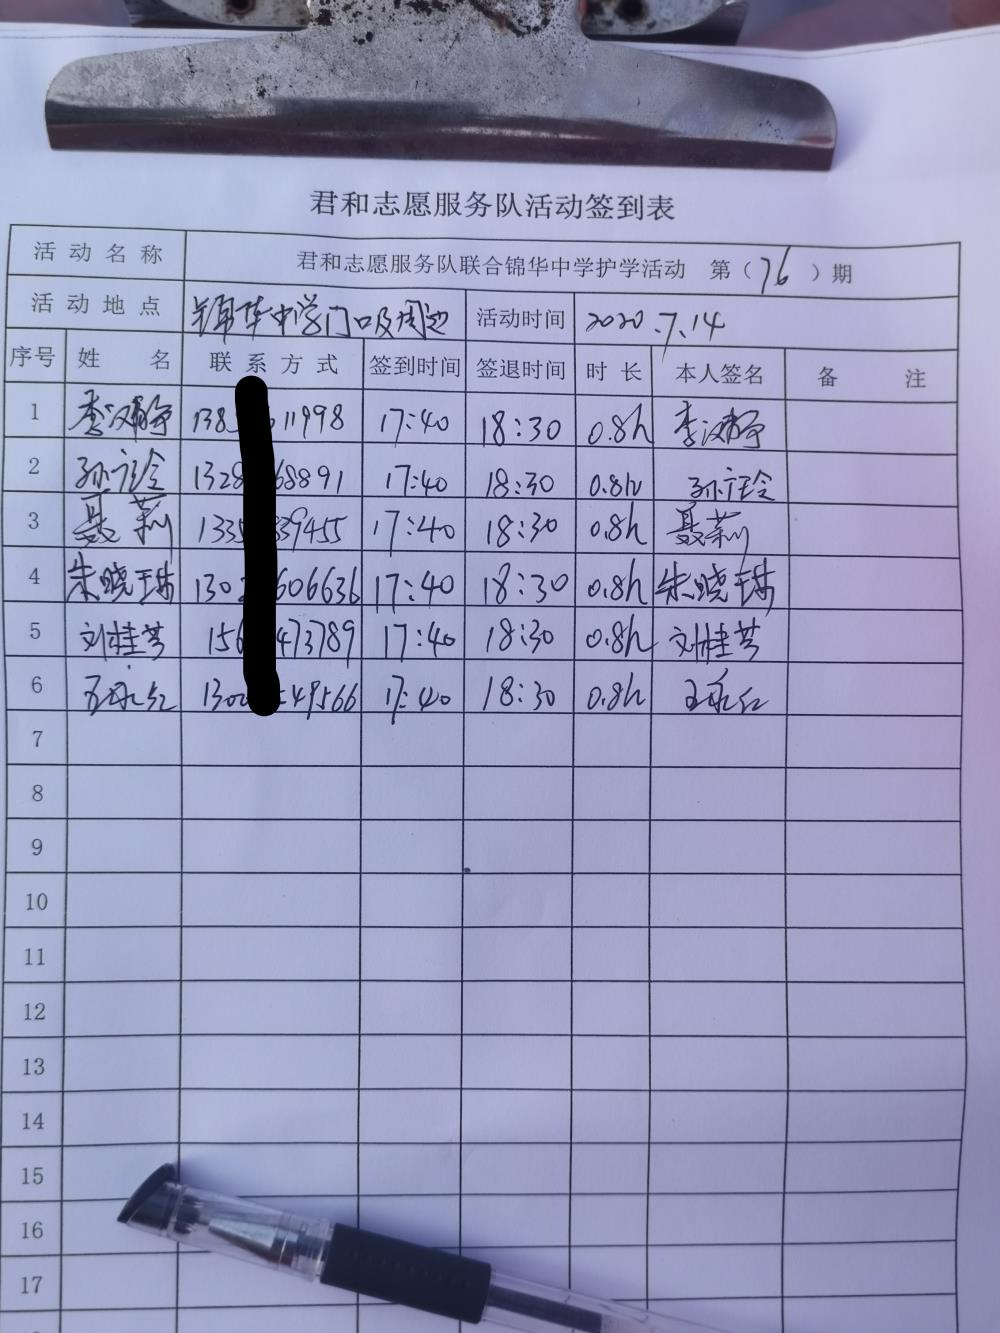 君和志愿服务队活动签到表
活动名称 君和志愿服务队联合锦华中学护学活动 第（76）期
活动地点 锦华中学门口及周边 活动时间 2020.7.14
序号 姓名 联系方式 签到时间 签退时间 时长 本人签名 备注
1 李汉静 138 11998 17:40 18:30 0.8h 李汉静
2 孙玲 1328 68891 17:40 18:30 0.8h 孙玲
3 聂莉 133 39455 17:40 18:30 0.8h 聂莉
4 朱晓 130 606636 17:40 18:30 0.8h 朱晓
5 刘桂芳 156 473789 17:40 18:30 0.8h 刘桂芳
6 王永红 130 49566 17:40 18:30 0.8h 王永红
7
8
9
10
11
12
13
14
15
16
17